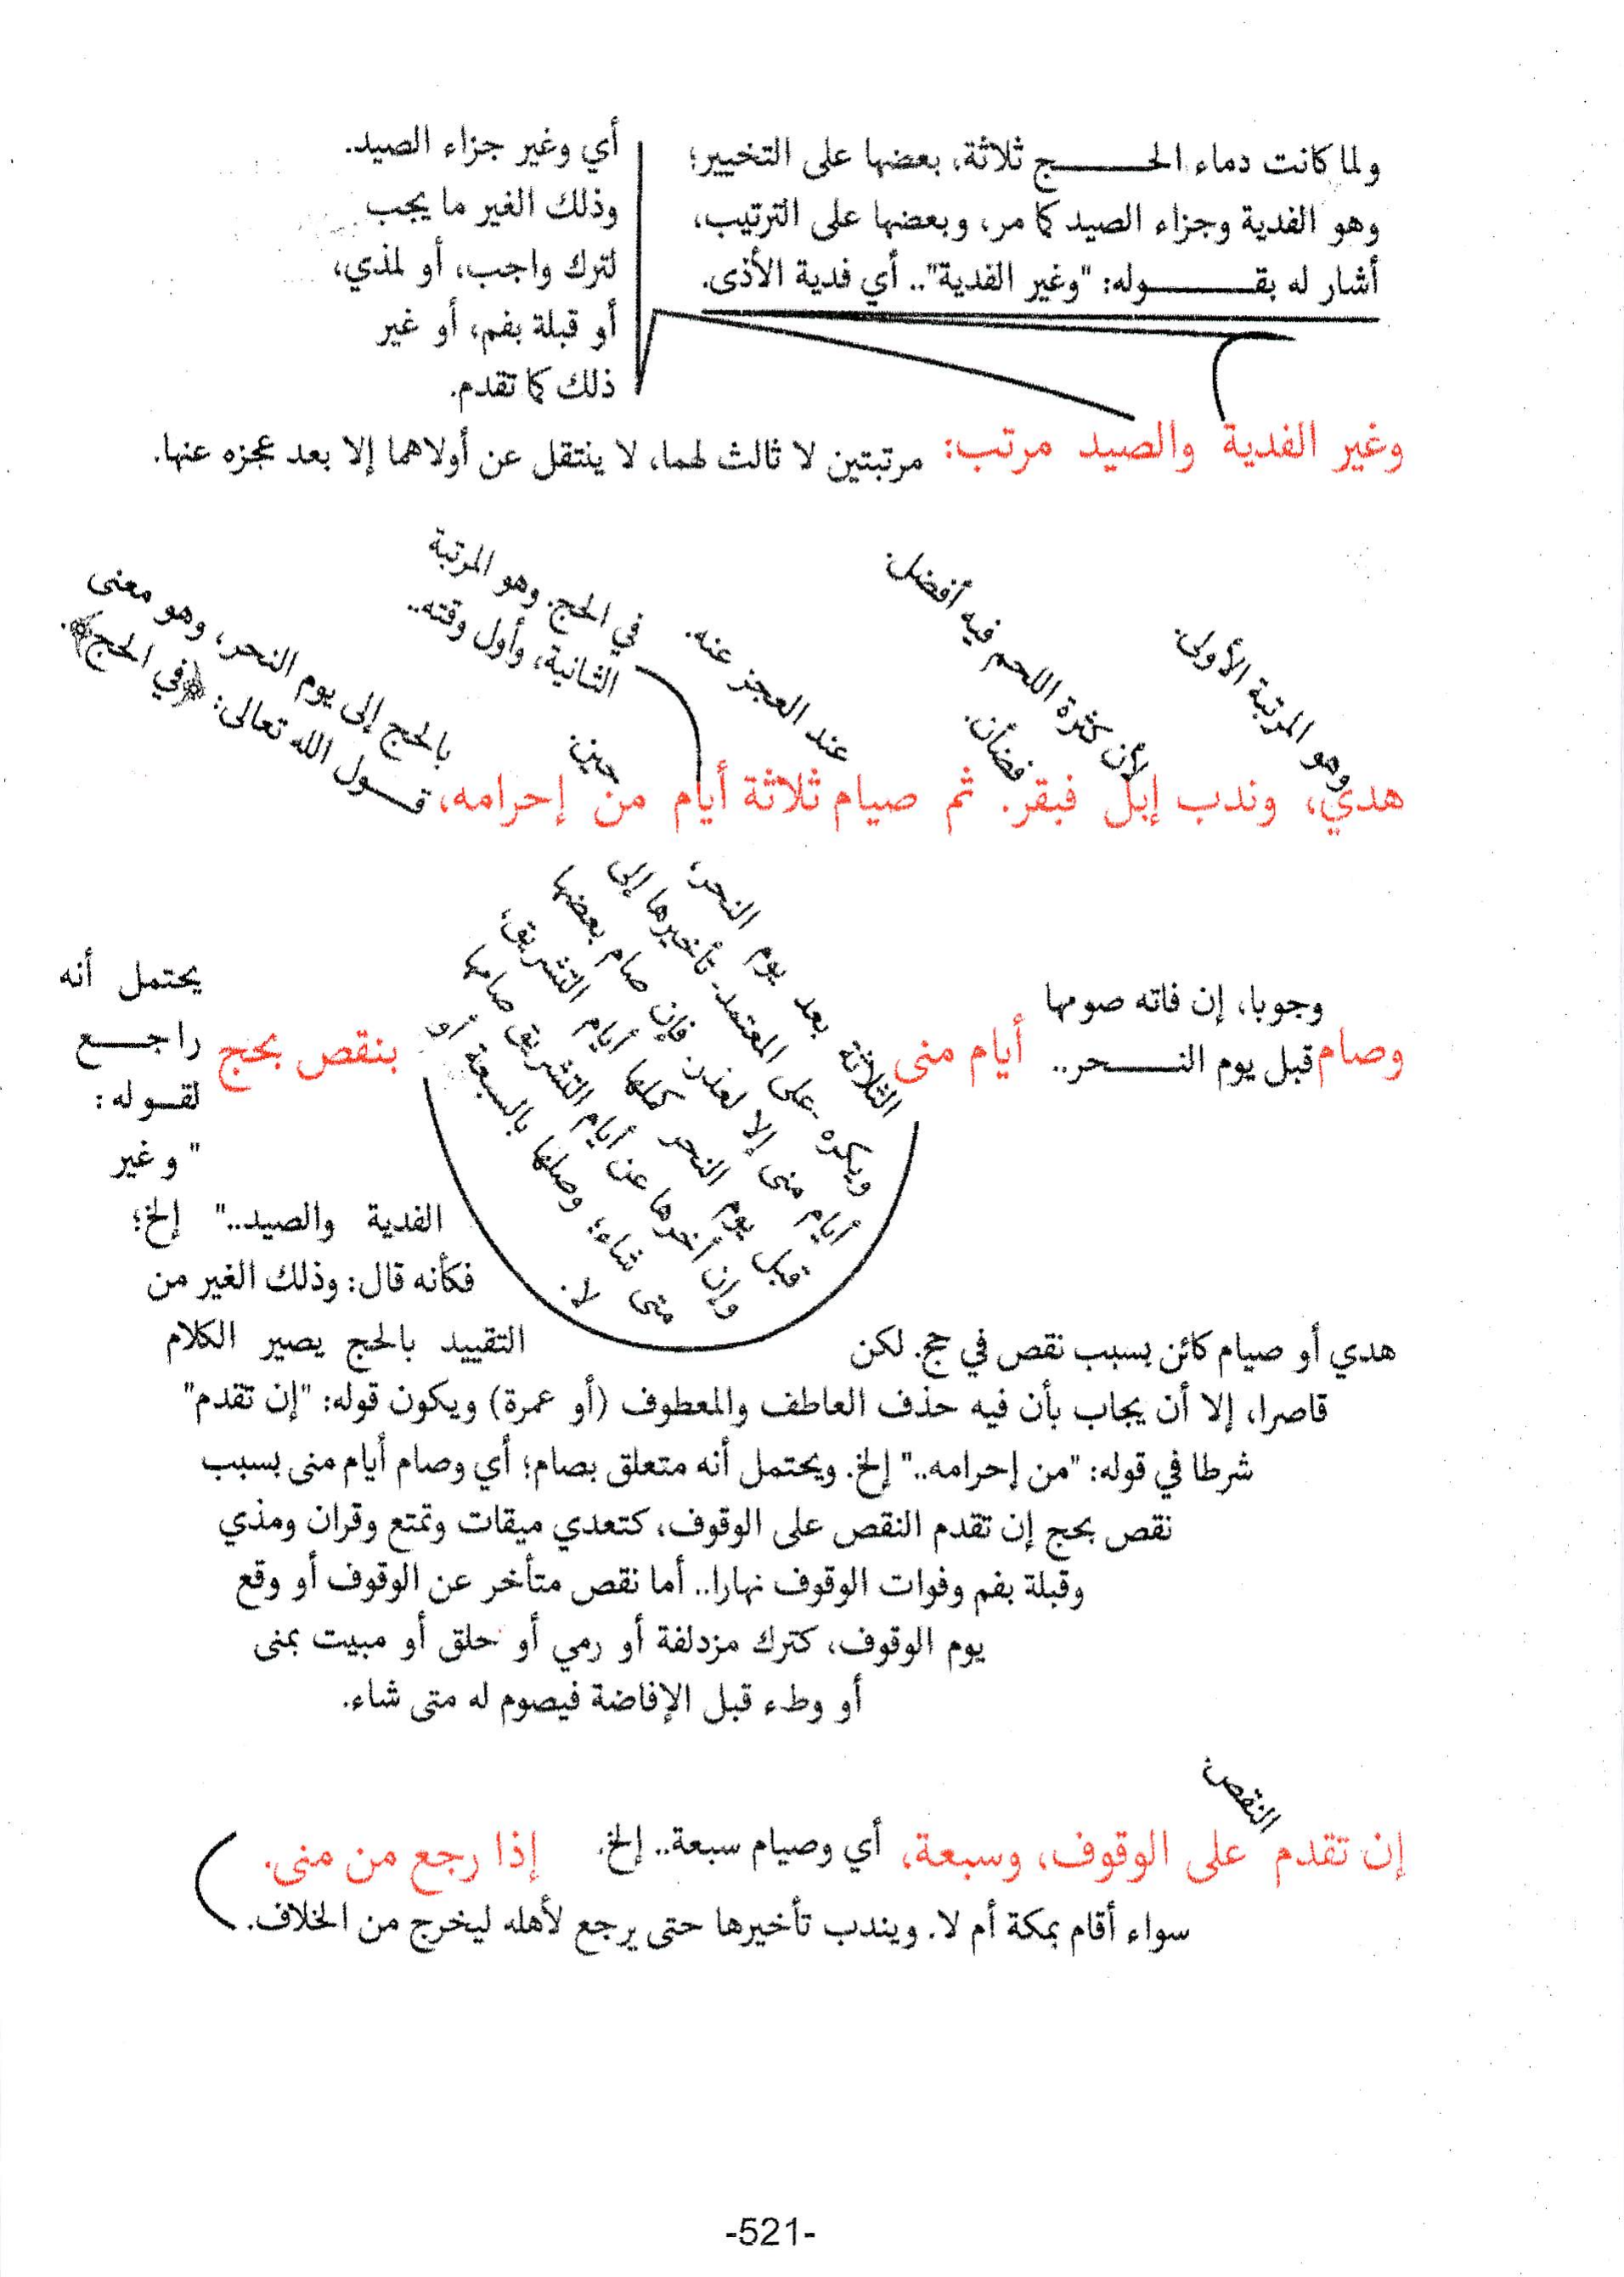 ولما كانت دماء الحج ثلاثة، بعضها على التخيير؛
وهو الفدية وجزاء الصيد كما مر، وبعضها على الترتيب،
أشار له بقوله: "وغير الفدية".. أي فدية الأذى.
أي وغير جزاء الصيد.
وذلك الغير ما يجب
لترك واجب، أو لمذي،
أو قبلة بفم، أو غير
ذلك كما تقدم.
وغير الفدية والصيد مرتب: مرتبتين لا ثالث لهما، لا ينتقل عن أولاهما إلا بعد عجزه عنها.
وهو المرتبة الأولى.
لأن كثرة اللحم فيه أفضل.
فضأن.
عند العجز عنه.
في الحج. وهو المرتبة
الثانية، وأول وقته..
حين.
بالحج إلى يوم النحر، وهو معنى
قول الله تعالى: ﴿في الحج﴾.
هدي، وندب إبل فبقر. ثم صيام ثلاثة أيام من إحرامه،
وصام
وجوبا، إن فاته صومها
قبل يوم النحر..
أيام منى
الثلاثة بعد يوم النحر،
ويكره -على المعتمد- تأخيرها إلى
أيام منى إلا لعذر. فإن صام بعضها
قبل يوم النحر كملها أيام التشريق،
وإن أخرها عن أيام التشريق صامها
متى شاء؛ وصلها بالسبعة أو
لا.
بنقص بحج
يحتمل أنه
راجع
لقوله:
"وغير
الفدية والصيد.." إلخ؛
فكأنه قال: وذلك الغير من
هدي أو صيام كائن بسبب نقص في حج. لكن التقييد بالحج يصير الكلام
قاصرا، إلا أن يجاب بأن فيه حذف العاطف والمعطوف (أو عمرة) ويكون قوله: "إن تقدم"
شرطا في قوله: "من إحرامه.." إلخ. ويحتمل أنه متعلق بصام؛ أي وصام أيام منى بسبب
نقص بحج إن تقدم النقص على الوقوف، كتعدي ميقات وتمتع وقران ومذي
وقبلة بفم وفوات الوقوف نهارا.. أما نقص متأخر عن الوقوف أو وقع
يوم الوقوف، كترك مزدلفة أو رمي أو حلق أو مبيت بمنى
أو وطء قبل الإفاضة فيصوم له متى شاء.
النقص
إن تقدم على الوقوف، وسبعة، أي وصيام سبعة.. إلخ. إذا رجع من منى.
سواء أقام بمكة أم لا. ويندب تأخيرها حتى يرجع لأهله ليخرج من الخلاف.
-521-